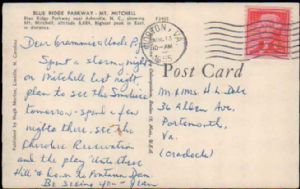 BLUE RIDGE PARKWAY - MT. MITCHELL
Blue Ridge Parkway near Asheville, N. C., showing
Mt. Mitchell, altitude 6,684, highest peak in East-
Post Card
Dear Grammie & Uncle P
Spent a stormy night
on Mitchell last night
plan to see the Smokies
tomorrow - spend a few
nights there, see the
Cherokee Reservation
and the play "Unto these
Hills" & down to Fontana Dam
Be seeing you - Jean
Mr & Mrs. H. L. Dale
36 Alden Ave
Portsmouth,
Va.
(Cradock)